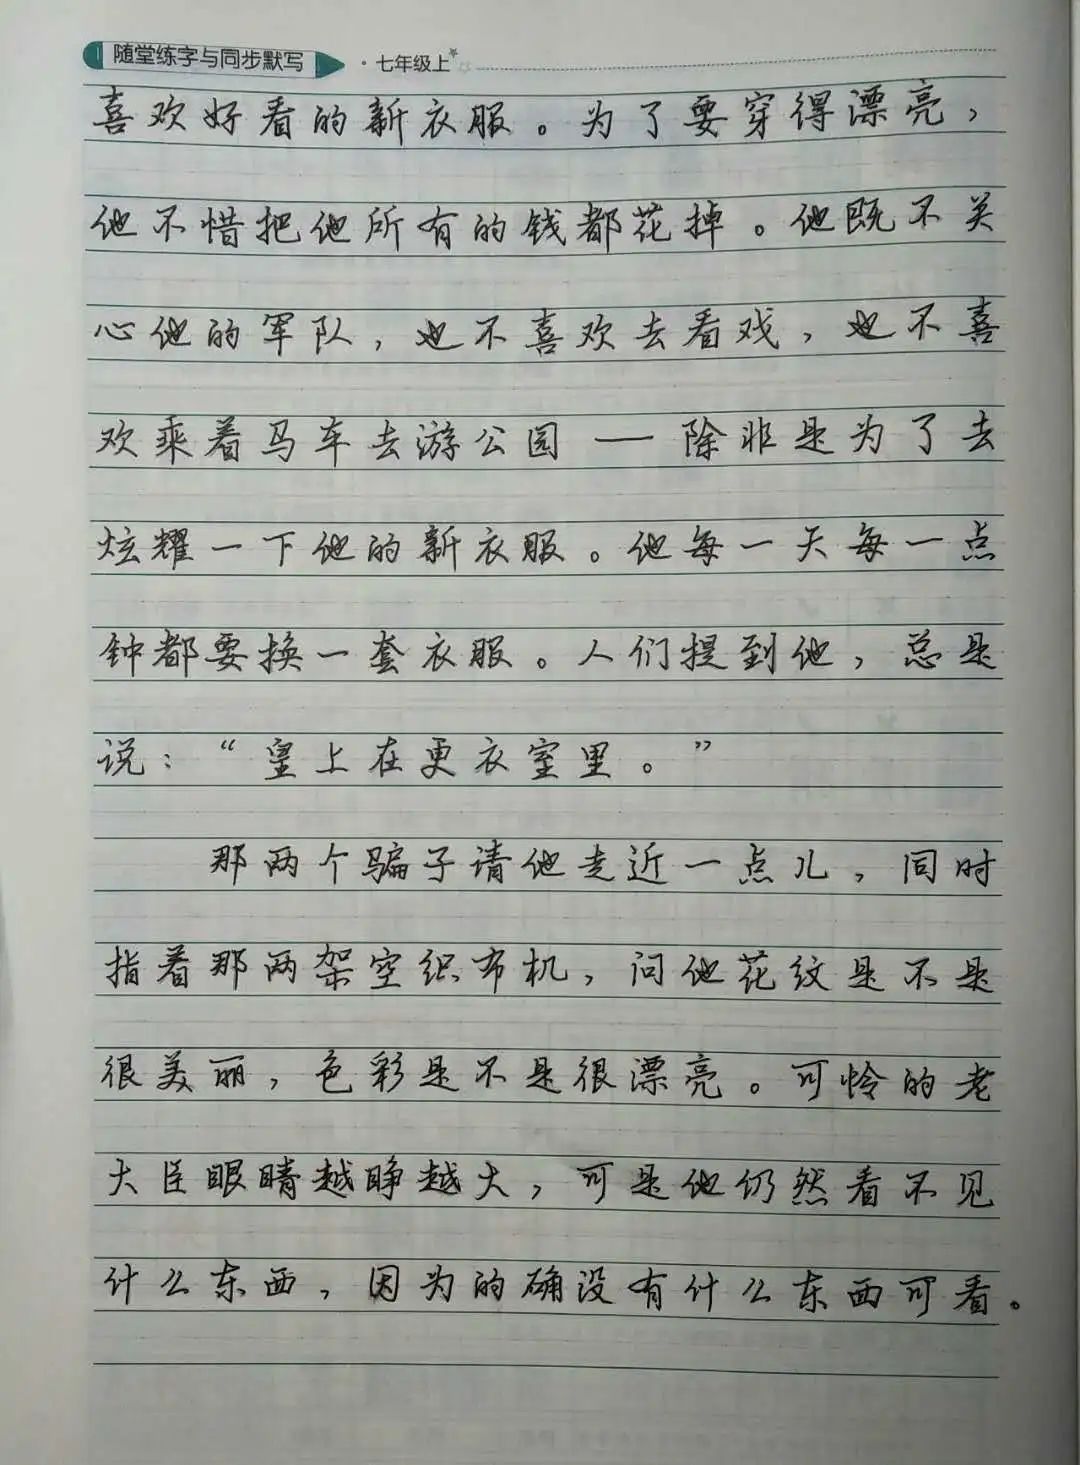 随堂练字与同步默写 · 七年级上
喜欢好看的新衣服。为了要穿得漂亮，
他不惜把他所有的钱都花掉。他既不关
心他的军队，也不喜欢去看戏，也不喜
欢乘着马车去游公园——除非是为了去
炫耀一下他的新衣服。他每一天每一点
钟都要换一套衣服。人们提到他，总是
说：“皇上在更衣室里。”
那两个骗子请他走近一点儿，同时
指着那两架空织布机，问他花纹是不是
很美丽，色彩是不是很漂亮。可怜的老
大臣眼睛越睁越大，可是他仍然看不见
什么东西，因为的确没有什么东西可看。